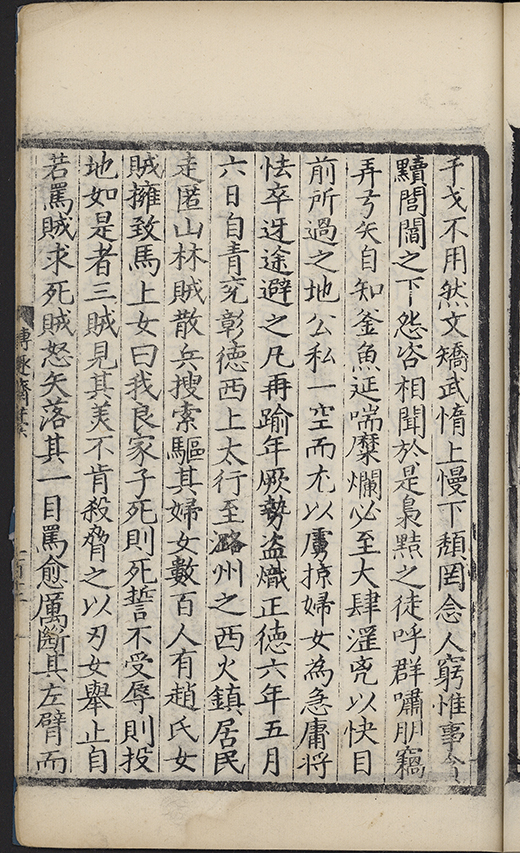 干戈不用然文矯武惰上慢下頽罔念人窮惟事貪
黷閭閻之下怨咨相聞於是梟黠之徒呼群嘯朋竊
弄弓矢自知釜魚延喘糜爛必至大肆淫兇以快目
前所過之地公私一空而尤以虜掠婦女為急庸將
怯卒迓途避之凡再踰年厥勢盗熾正德六年五月
六日自青兗彰德西上太行至潞州之西火鎮居民
走匿山林賊散兵搜索驅其婦女數百人有趙氏女
賊擁致馬上女曰我良家子死則死誓不受辱則投
地如是者三賊見其美不肯殺脅之以刃女舉止自
若罵賊求死賊怒矢落其一目罵愈厲斷其左臂而
博趣齋藁